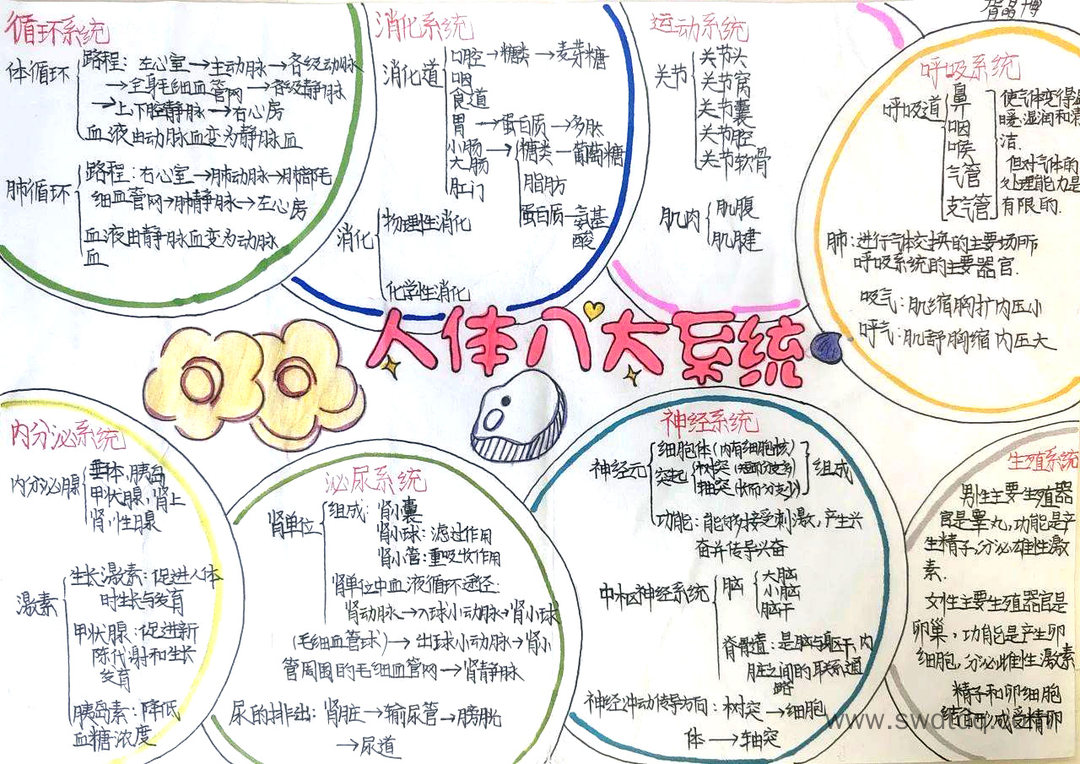 循环系统
体循环
路程：左心室→主动脉→各级动脉
→全身毛细血管网→各级静脉
→上下腔静脉→右心房
血液由动脉血变为静脉血
肺循环
路程：右心室→肺动脉→肺部毛
细血管网→肺静脉→左心房
血液由静脉血变为动脉
血
消化系统
消化道
口腔→糖类→麦芽糖
咽
食道
胃→蛋白质→多肽
小肠→糖类—葡萄糖
大肠
肛门
脂肪
蛋白质—氨基
酸
消化
物理性消化
化学性消化
运动系统
关节
关节头
关节窝
关节囊
关节腔
关节软骨
肌肉
肌腹
肌腱
呼吸系统
呼吸道
鼻
咽
喉
气管
支气管
使气体变得温
暖、湿润和清
洁.
但对气体的
处理能力是
有限的.
肺：进行气体交换的主要场所
呼吸系统的主要器官.
吸气：肌缩胸扩内压小
呼气：肌舒胸缩内压大
人体八大系统
内分泌系统
内分泌腺
垂体、胰岛
甲状腺，肾上
激素
生长激素：促进人体
时生长与发育
甲状腺：促进新
陈代谢和生长
发育
胰岛素：降低
血糖浓度
泌尿系统
肾单位
组成：肾小囊
肾小球：滤过作用
肾小管：重吸收作用
肾单位中血液循环途径：
肾动脉→入球小动脉→肾小球
(毛细血管球)→出球小动脉→肾小
管周围的毛细血管网→肾静脉
尿的排出：肾脏→输尿管→膀胱
→尿道
神经系统
神经元
细胞体(内有细胞核)
突起
树突
轴突
组成
功能：能够接受刺激，产生兴
奋并传导兴奋
中枢神经系统
脑
大脑
小脑
脑干
脊骨遗：是脑与躯干、内
脏之间的联系通
神经冲动传导方向：树突→细胞
体→轴突
生殖系统
男性主要生殖器
官是睾丸，功能是产
生精子，分泌雄性激
素.
女性主要生殖器官是
卵巢，功能是产生卵
细胞，分泌雌性激素
精子和卵细胞
结合形成受精卵